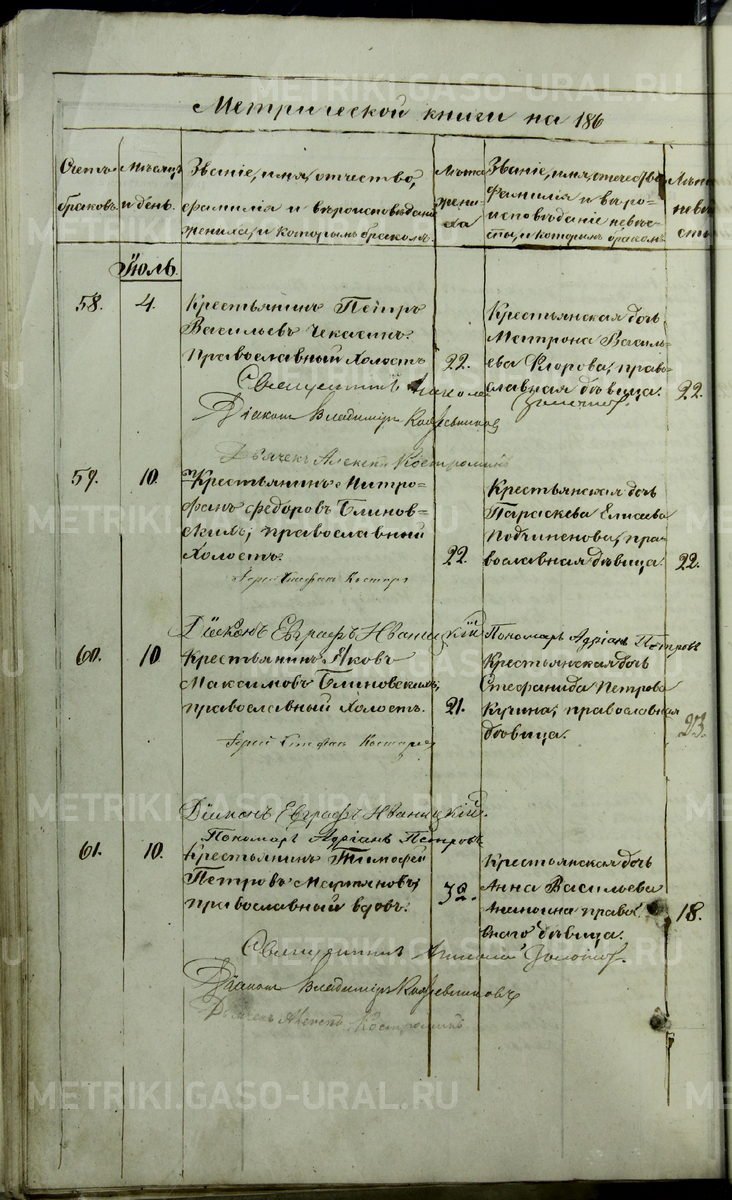 METRIKI.GASO-URAL.RU
Метрической книги на 186
Счетъ браковъ.
Мѣсяцъ и день.
Званіе, имя, отчество,
фамилія и вѣроисповѣданіе
жениха, и которымъ бракомъ.
Лѣта
жени-
ха
Званіе, имя, отечество,
фамилія и вѣро-
исповѣданіе невѣ-
сты, и которымъ бракомъ.
Лѣта
невѣ
сты
Іюль.
58.
4.
Крестьянинъ Петръ
Васильевъ
Православный холостъ
22.
Крестьянская дочь
Матрона Василь-
ева право-
славная дѣвица.
22.
Священникъ Николай
Діаконъ Владиміръ Кожевниковъ
Дьячекъ Алексѣй Костроминъ
59.
10.
Крестьянинъ Митро-
фанъ Федоровъ Блинов-
скихъ, православный
холостъ.
22.
Крестьянская дочь
Параскева Елисеева
пра-
вославная дѣвица.
22.
Іерей Стефанъ
Діаконъ Евграфъ Иваницкій
Пономарь Адріанъ Петровъ
60.
10
Крестьянинъ Яковъ
Максимовъ Блиновскихъ,
православный холостъ.
21.
Крестьянская дочь
Стефанида Петрова
Кучина, православная
дѣвица.
23.
Іерей Стефанъ
Діаконъ Евграфъ Иваницкій.
Пономарь Адріанъ Петровъ
61.
10.
Крестьянинъ Тимофей
Петровъ Мартяновъ,
православный вдовъ.
32.
Крестьянская дочь
Анна Васильева
дѣвица.
18.
Священникъ Николай
Діаконъ Владиміръ Кожевниковъ
Дьячекъ Алексѣй Костроминъ